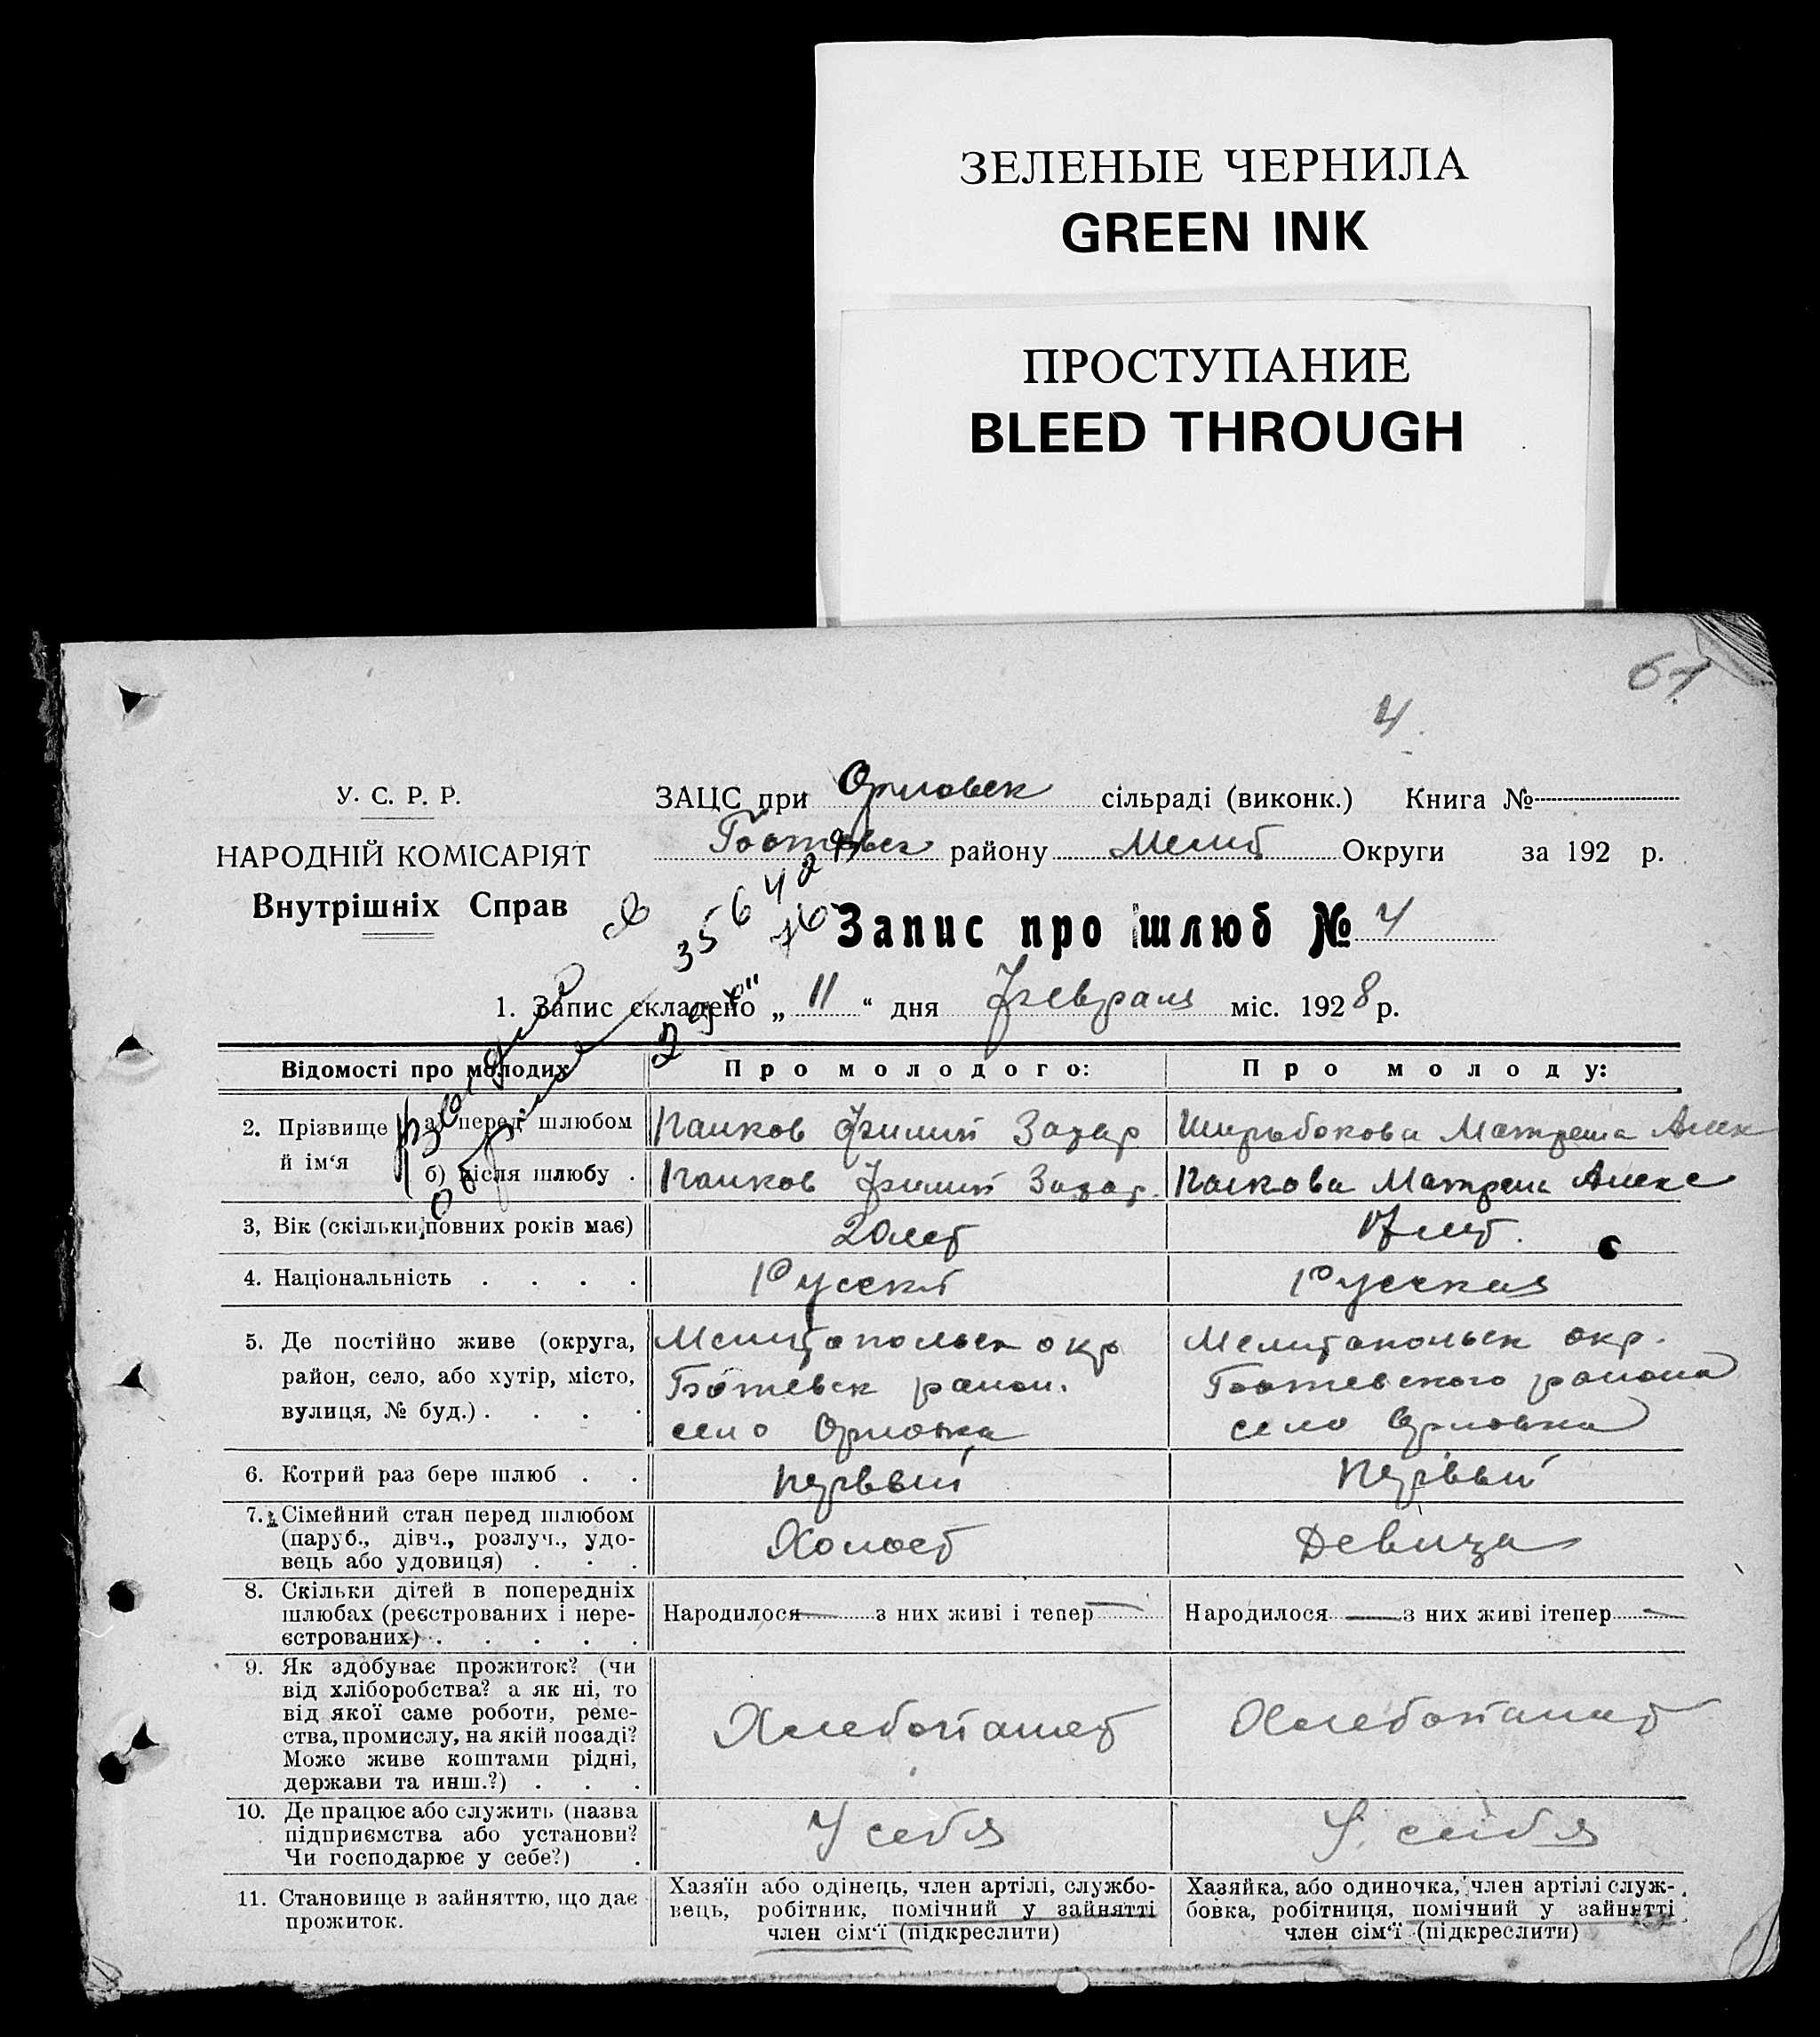 ЗЕЛЕНЫЕ ЧЕРНИЛА
GREEN INK
ПРОСТУПАНИЕ
BLEED THROUGH
61
4.
У. С. Р. Р.
НАРОДНІЙ КОМІСАРІЯТ
Внутрішніх Справ
ЗАЦС при Орловск сільраді (виконк.) Книга №
Ботевск району Мелит Округи за 192 р.
Запис про шлюб № 4
1. Запис складено „ 11 “ дня Февраля міс. 1928 р.
Відомості про молодих Про молодого: Про молоду:
2. Прізвище й ім‘я
а) перед шлюбом Панков Филип Захар Матреша Алек
б) після шлюбу . Панков Филип Захар. Панкова Матреш Алекс
3, Вік (скільки повних років має) 20 лет 17 лет.
4. Національність . . . . Руский Руская
5. Де постійно живе (округа, Мелитопольск окр Мелитопольск окр.
район, село, або хутір, місто, Ботевск район. Ботевского района
вулиця, № буд.) . . . . село Орловка село Орловка
6. Котрий раз бере шлюб . . первый первый
7. Сімейний стан перед шлюбом
(паруб., дівч., розлуч., удо- Холост Девица
вець або удовиця) . . .
8. Скільки дітей в попередніх
шлюбах (реєстрованих і нере- Народилося — з них живі і тепер — Народилося — з них живі ітепер —
єстрованих) . . . . .
9. Як здобуває прожиток? (чи
від хліборобства? а як ні, то
від якої саме роботи, реме-
ства, промислу, на якій посаді? Хлебопашет Хлебопашет
Може живе коштами рідні,
держави та инш.?) . . .
10. Де працює або служить (назва
підприємства або установи? У себя У себя
Чи господарює у себе?) .
11. Становище в зайняттю, що дає
прожиток.
Хазяїн або одінець, член артілі, службо-
вець, робітник, помічний у зайнятті
член сім‘ї (підкреслити)
Хазяйка, або одиночка, член артілі служ-
бовка, робітниця, помічний у зайнятті
член сім‘ї (підкреслити)